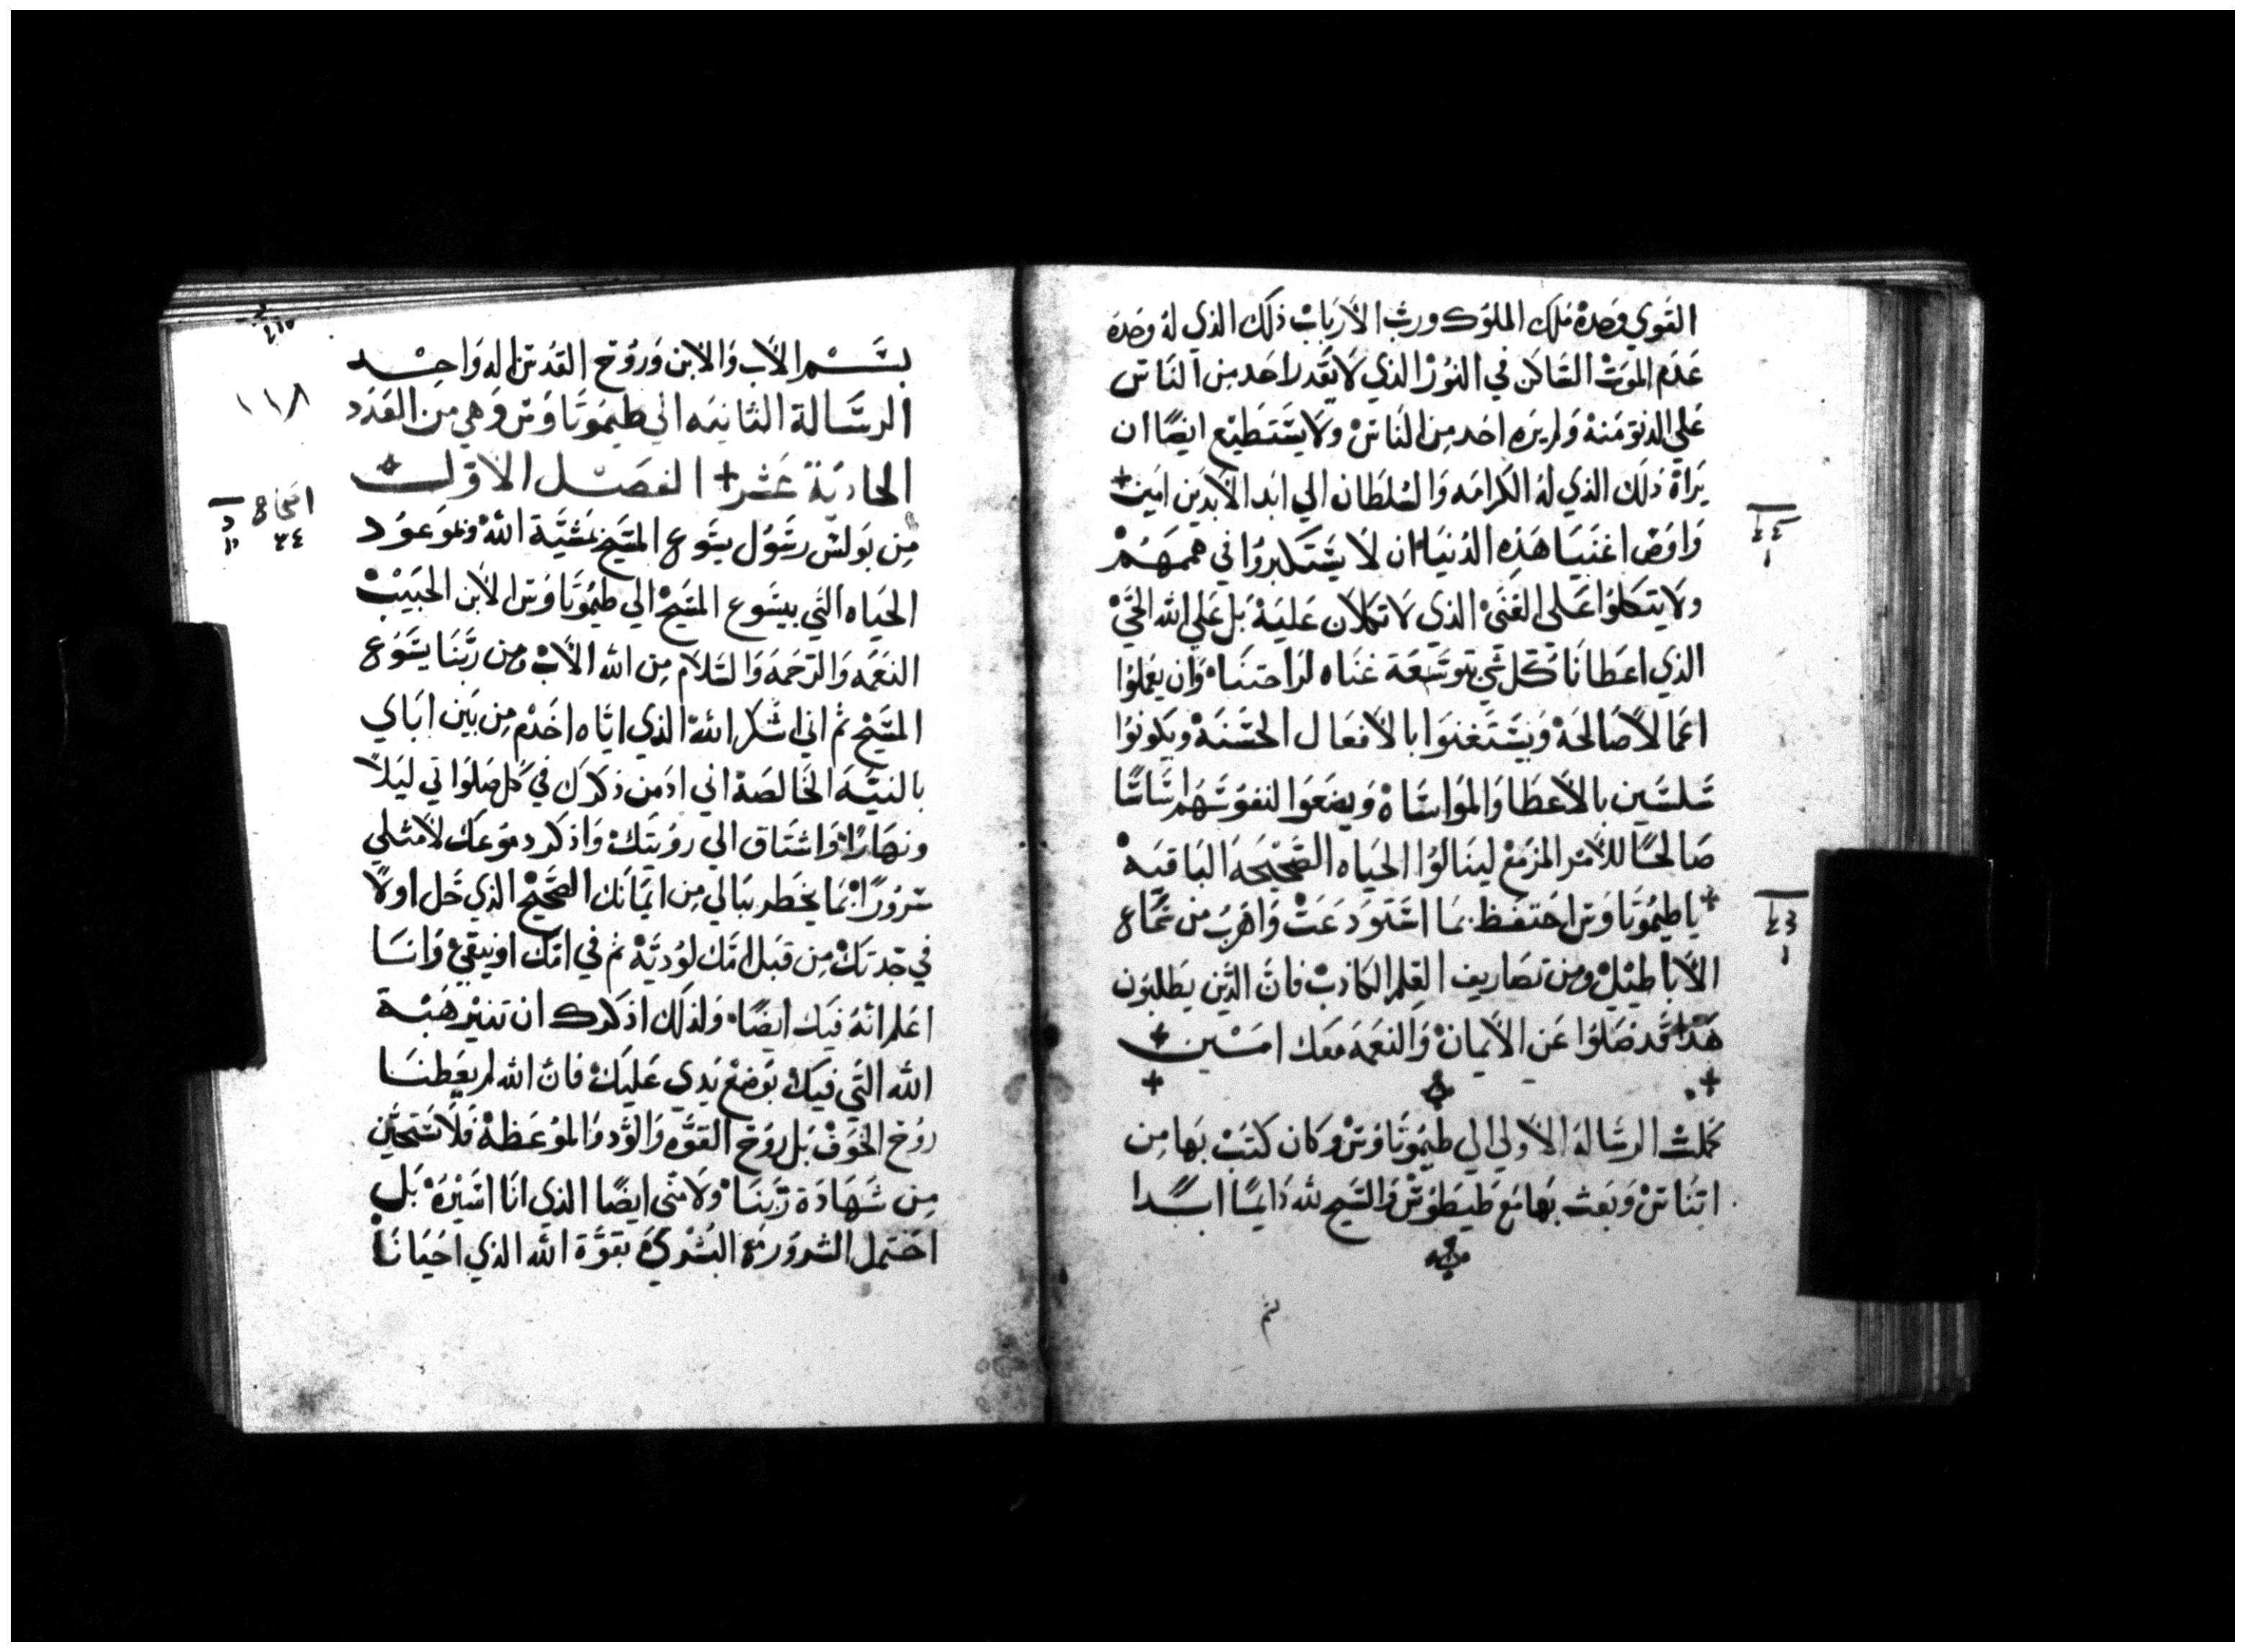 القوي وحده ملك الملوك ورب الأرباب ذلك الذي له وحده
عدم الموت الساكن في النور الذي لا يقدر احد من الناس
علي الدنو منه ولم يره احد من الناس ولا يستطيع ايضًا ان
يراه ذلك الذي له الكرامه والسلطان الي ابد الأبدين امين +
واوص اغنيا هذه الدنيا ان لا يستكبروا في هممهم
ولا يتكلوا علي الغني الذي لا تكلان عليه بل علي الله الحي
الذي اعطانا كل شي بتوسعة غناه لراحتنا وان يعملوا
اعمالاً صالحة ويستغنوا بالأفعال الحسنة ويكونوا
سلسين بالأعطا والمواساه ويضعوا لنفوسهم اساسًا
صالحًا للأمر المزمع لينالوا الحياه الصحيحه الباقيه
+ يا طيموتاوس احتفظ بما استودعت واهرب من سماع
الأباطيل ومن تصاريف العلم الكاذب فان الذين يطلبون
هذا قد ضلوا عن الأيمان والنعمه معك امين +
كملت الرساله الأولي الي طيموتاوس وكان كتب بها من
اتناس وبعث بها مع طيطوس والسبح لله دايمًا ابدًا
بسم الأب والأبن وروح القدس اله واحد
الرسالة الثانيه الي طيموتاوس وهي من العدد
الحادية عشر + الفصل الأول +
من بولس رسول يسوع المسيح بمشية الله وبموعود
الحياه التي بيسوع المسيح الي طيموتاوس الأبن الحبيب
النعمه والرحمه والسلام من الله الأب ومن ربنا يسوع
المسيح ثم اني اشكر الله الذي اياه اخدم من بين اباي
بالنيه الخالصة اني ادمن ذكرك في كل صلواتي ليلاً
ونهارًا واشتاق الي رويتك واذكر دموعك لأمتلي
سرورًا بما يخطر ببالي من ايمانك الصحيح الذي حل اولاً
في جدتك من قبل امك لوديه ثم في امك اونيقي وانا
اعلم انه فيك ايضًا ولذلك اذكرك ان تنير هبة
الله التي فيك بوضع يدي عليك فان الله لم يعطنا
روح الخوف بل روح القوه والود والموعظة فلا تستحين
من شهادة ربنا ولا مني ايضًا الذي انا اسيره بل
احتمل الشرور مع البشري بقوة الله الذي احيانا
١١٨
اصحاح